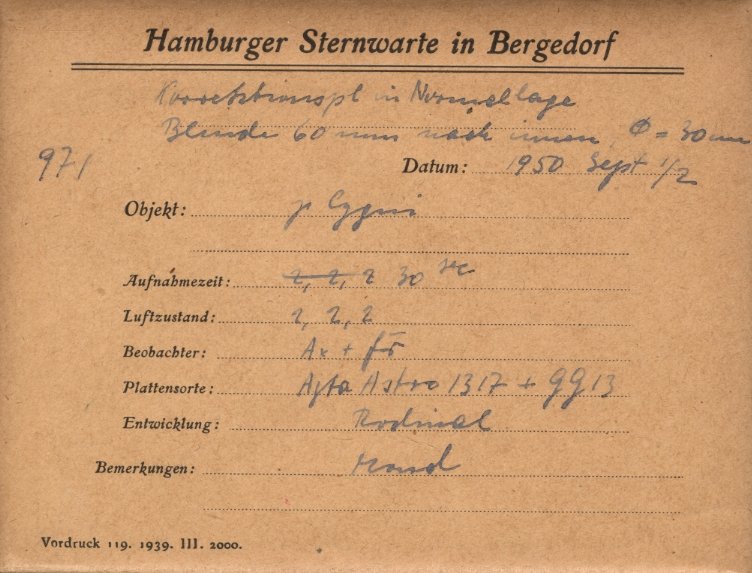 Hamburger Sternwarte in Bergedorf
Korrektionspl in Normallage
Blende 60 mm nach innen, Φ = 30 cm
971
Datum: 1950 Sept 1/2
Objekt: γ Cygni
Aufnahmezeit: 2, 2, 2 30 sec
Luftzustand: 2, 2, 2
Beobachter: Ax +
Plattensorte: Agfa Astro 1317 + GG13
Entwicklung: Rodinal
Bemerkungen: Mond
Vordruck 119. 1939. III. 2000.